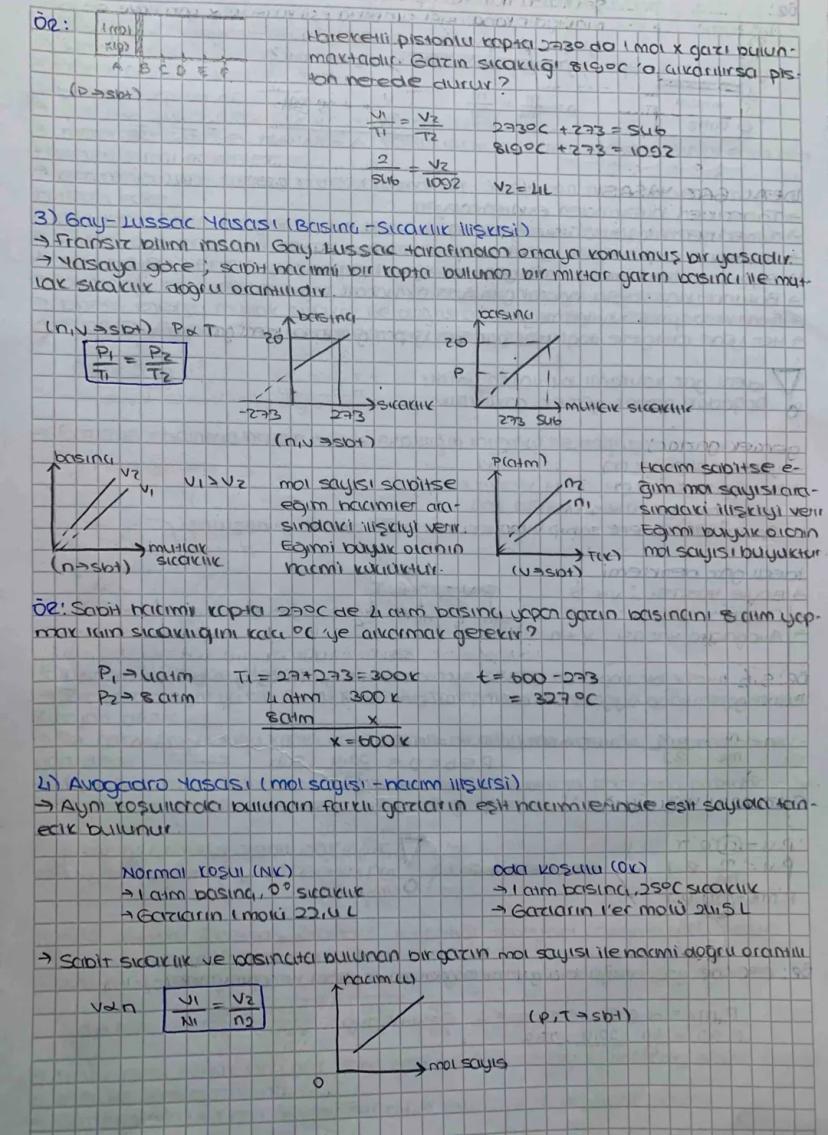 Ör:
1mol
x(g)
A B C D E F
(P→sbt)
Hareketli pistonlu kapta 273°C da 1 mol x gazı bulun-
maktadır. Gazın sıcaklığı 819°C 'a çıkarılırsa pis-
ton nerede durur?
V1/T1 = V2/T2
273°C + 273 = 546
819°C + 273 = 1092
2/546 = V2/1092
V2 = 4L
3) Gay-Lussac Yasası (Basınç-Sıcaklık İlişkisi)
→ Fransız bilim insanı Gay Lussac tarafından ortaya konulmuş bir yasadır.
→ Yasaya göre; sabit hacimli bir kapta bulunan bir miktar gazın basıncı ile mut-
lak sıcaklık doğru orantılıdır.
(n,v→sbt) P∝T
P1/T1 = P2/T2
basınç
20
-273 273
sıcaklık
(n,v→sbt)
basınç
20
P
273 546
mutlak sıcaklık
basınç
V2
V1
V1>V2
mutlak
sıcaklık
(n→sbt)
mol sayısı sabitse
eğim hacimler ara-
sındaki ilişkiyi verir.
Eğimi büyük olanın
hacmi küçüktür.
P(atm)
n2
n1
T(K)
(v→sbt)
Hacim sabitse e-
ğim mol sayısı ara-
sındaki ilişkiyi verir
Eğimi büyük olanın
mol sayısı büyüktür
Ör: Sabit hacimli kapta 27°C de 4 atm basınç yapan gazın basıncını 8 atm yap-
mak için sıcaklığını kaç °C ye çıkarmak gerekir?
P1→4atm
P2→8atm
T1 = 27+273 = 300K
4atm 300K
8atm x
x=600K
t = 600-273
= 327°C
4) Avogadro Yasası (mol sayısı-hacim ilişkisi)
→ Aynı koşullarda bulunan farklı gazların eşit hacimlerinde eşit sayıda tan-
ecik bulunur
Normal koşul (NK)
→ 1 atm basınç, 0° sıcaklık
→ Gazların 1 molü 22,4 L
Oda koşulu (OK)
→ 1 atm basınç, 25°C sıcaklık
→ Gazların 1'er molü 24,5 L
→ Sabit sıcaklık ve basınçta bulunan bir gazın mol sayısı ile hacmi doğru orantılı
V∝n
V1/N1 = V2/n2
hacim (L)
0
mol sayıs
(P,T→sbt)